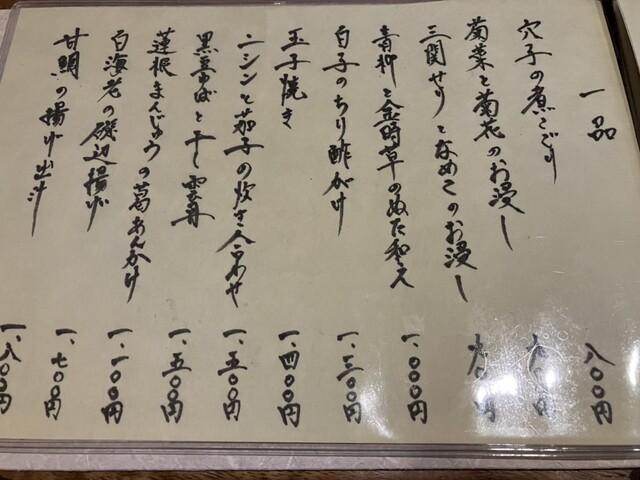 一品
穴子の煮こごり 八〇〇円
菊菜と菊花のお浸し 九〇〇円
三関せりとなめこのお浸し 九〇〇円
青柳と金時草のぬた和え 一、〇〇〇円
白子のちり酢がけ 一、三〇〇円
玉子焼き 一、四〇〇円
ニシンと茄子の炊き合わせ 一、五〇〇円
黒豆ゆばと干し雲丹 一、五〇〇円
蓮根まんじゅうの葛あんかけ 一、一〇〇円
白海老の磯辺揚げ 一、七〇〇円
甘鯛の揚げ出汁 一、八〇〇円